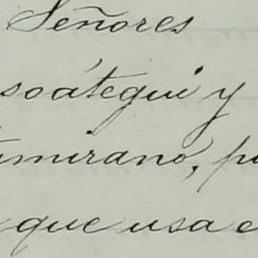 Señores
soátegui y
mirano, p
que usa e